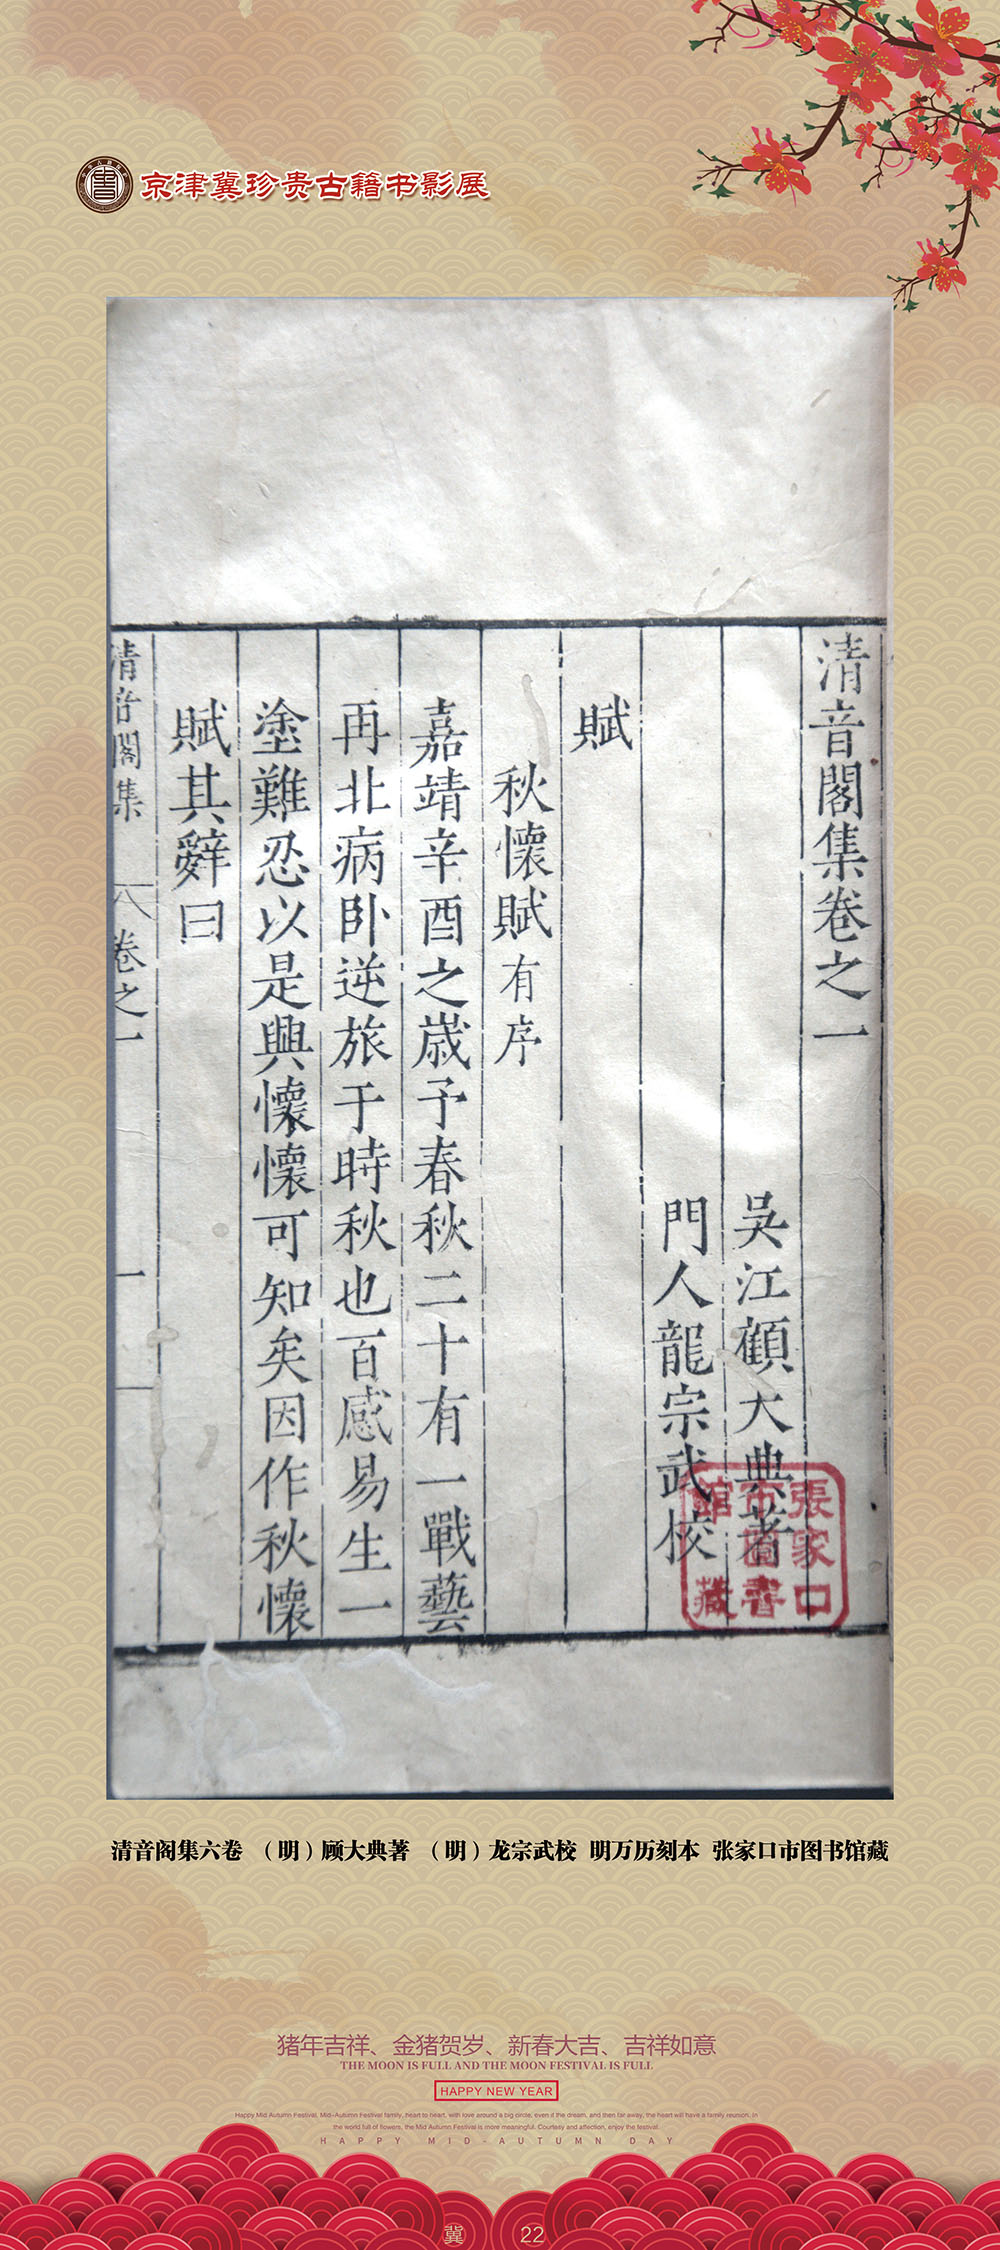 京津冀珍贵古籍书影展
清音閣集卷之一
吳江顧大典著
門人龍宗武校
賦
秋懷賦有序
嘉靖辛酉之歲予春秋二十有一戰藝
再北病卧逆旅于時秋也百感易生一
塗難忍以是興懷懷可知矣因作秋懷
賦其辭曰
清音閣集 卷之一 一
張家口
市圖書
館藏
清音阁集六卷 （明）顾大典著 （明）龙宗武校 明万历刻本 张家口市图书馆藏
猪年吉祥、金猪贺岁、新春大吉、吉祥如意
THE MOON IS FULL AND THE MOON FESTIVAL IS FULL
HAPPY NEW YEAR
Happy Mid Autumn Festival, Mid-Autumn Festival family, heart to heart, with love around a big circle, even if the dream, and then far away, the heart will have a family reunion. In
the world full of flowers, the Mid Autumn Festival is more meaningful. Courtesy and affection, enjoy the festival.
HAPPY MID-AUTUMN DAY
冀 22